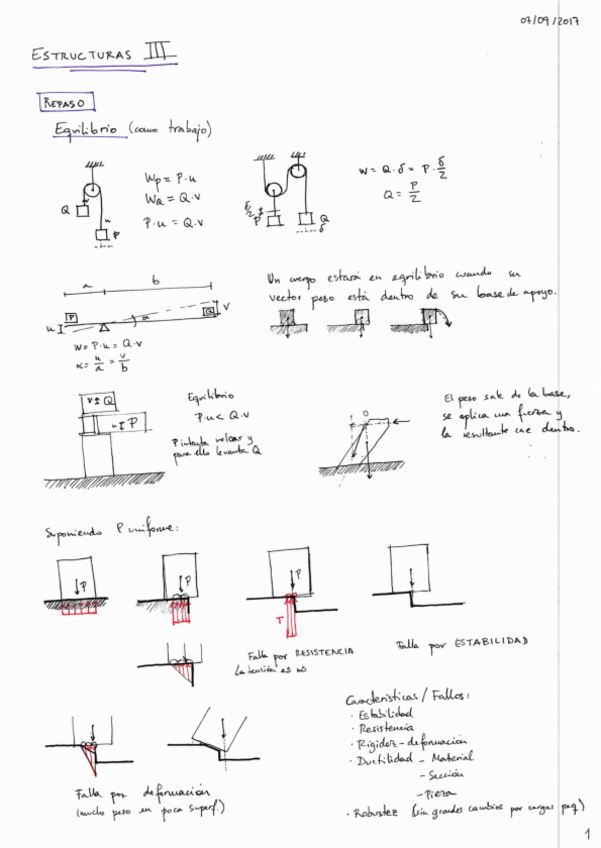 07/09/2017
ESTRUCTURAS III
REPASO
Equilibrio (como trabajo)
Wp = P·u
WQ = Q·v
P·u = Q·v
Q
u
P
δ/2
P
Q
δ
W = Q·δ = P·δ/2
Q = P/2
a
b
P
Q
v
u
α
W = P·u = Q·v
α = u/a = v/b
Un cuerpo estará en equilibrio cuando su
vector peso está dentro de su base de apoyo.
v Q
u P
Equilibrio
P·u < Q·v
P intenta volcar y
para ello levanta Q
O
El peso sale de la base,
se aplica una fuerza y
la resultante cae dentro.
Suponiendo P uniforme:
P
P
P
T
Falla por RESISTENCIA
La tensión es ∞
Falla por ESTABILIDAD
Falla por deformación
(mucho peso en poca superf.)
Características / Fallos:
· Estabilidad
· Resistencia
· Rigidez - deformación
· Ductilidad - Material
- Sección
- Pieza
· Robustez (sin grandes cambios por cargas peq.)
1